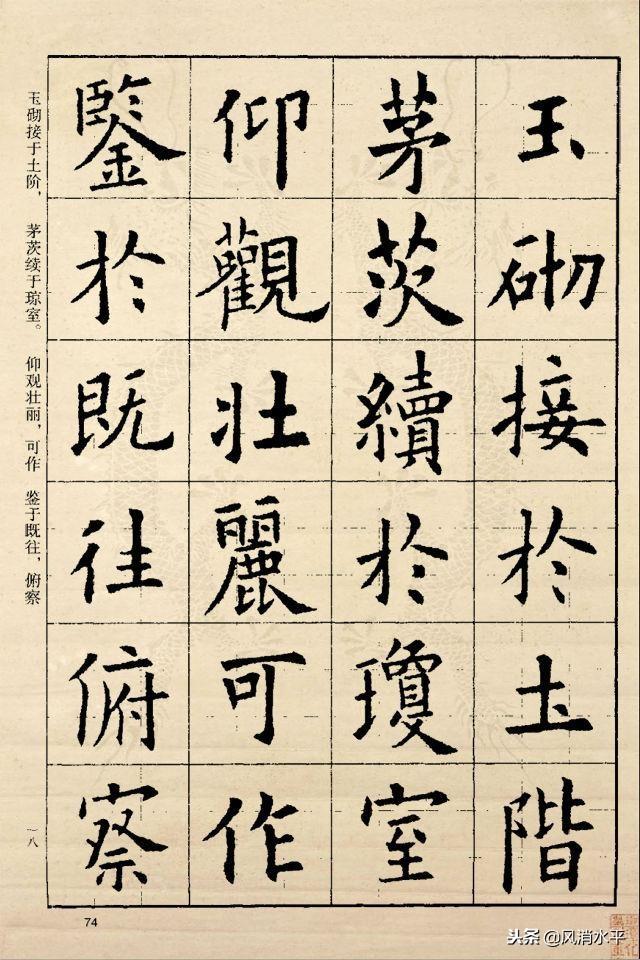 玉砌接於土階
茅茨續於瓊室
仰觀壯麗可作
鑒於既往俯察
玉砌接于土阶，茅茨续于琼室。仰观壮丽，可作鉴于既往，俯察
一八
74
头条@风消水平